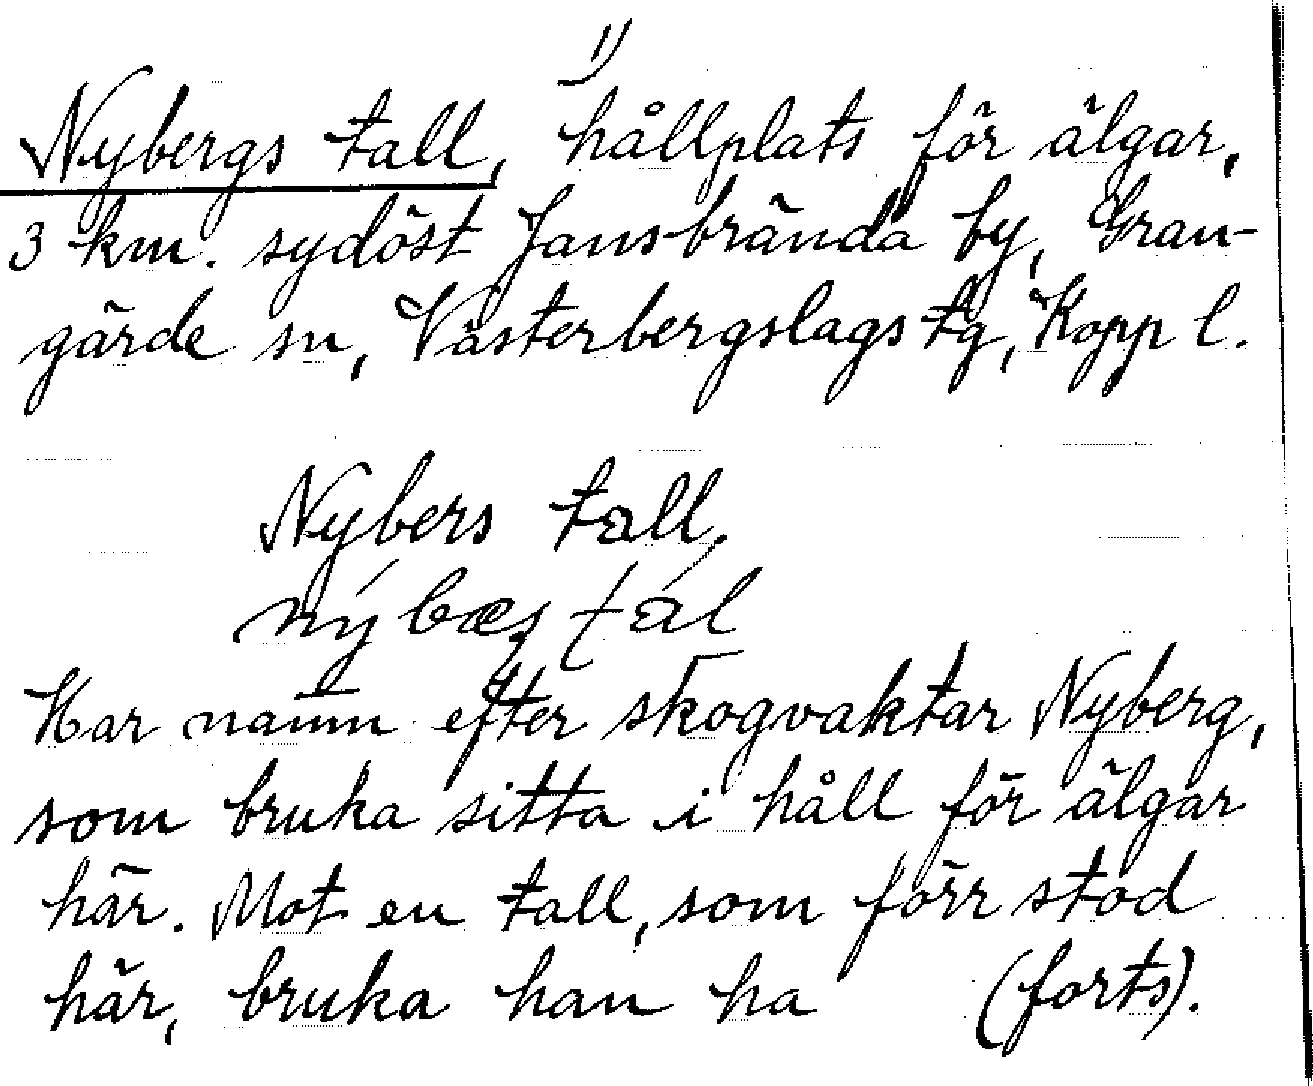 1)
Nybergs tall, hållplats för älgar,
3 km. sydöst Jansbrända by, Gran-
gärde sn, Västerbergslags tg, Kopp l.
Nybers tall.
nýbæʂ tál
Har namn efter skogvaktar Nyberg,
som bruka sitta i håll för älgar
här. Mot en tall, som förr stod
här, bruka han ha (forts).